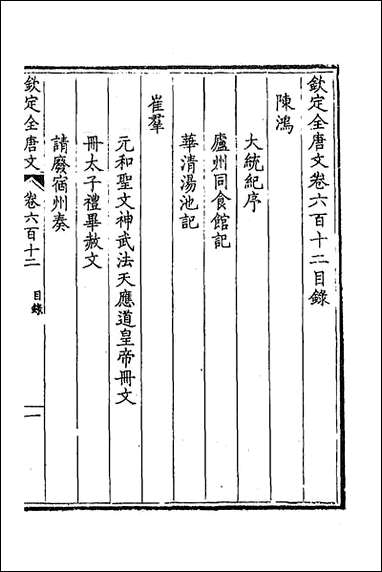 欽定全唐文卷六百十二目錄
陳鴻
大統紀序
廬州同食館記
華清湯池記
崔羣
元和聖文神武法天應道皇帝冊文
冊太子禮畢赦文
請廢宿州奏
欽定全唐文 卷六百十二 目錄 一